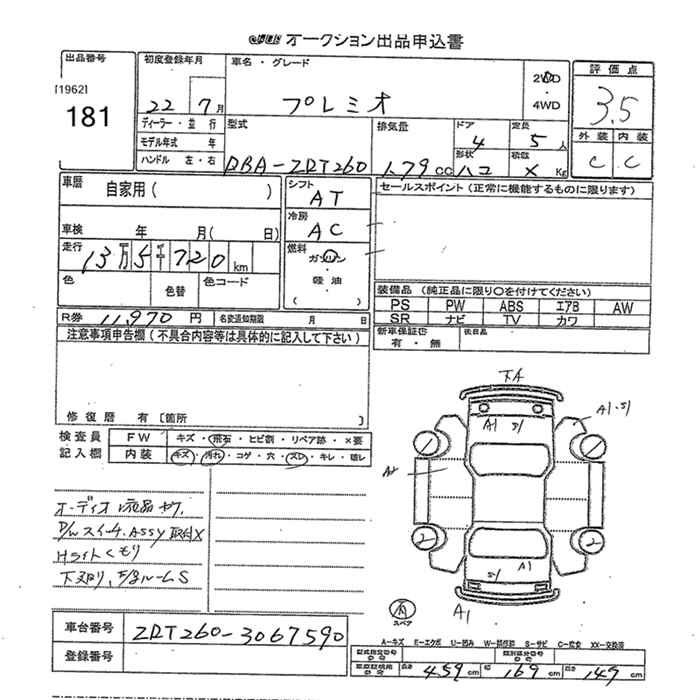 オークション出品申込書
出品番号 初度登録年月 車名・グレード 評価点
[1962] 2WD
181 22 7月 プレミオ ・ 3.5
4WD
ディーラー・並行 型式 排気量 ドア 4 定員 5人 外装 内装
モデル年式 年
ハンドル 左・右 DBA-ZRT260 1.79cc 形状 ハコ 積載 × Kg C C
車歴 自家用( ) シフト AT セールスポイント(正常に機能するものに限ります)
車検 年 月( 日) 冷房 AC
走行 13万5千720km 燃料 ガソリン
・
色 色替 色コード 軽油
( ) 装備品(純正品に限り○を付けてください)
PS PW ABS エアB AW
R券 11,970円 名変通知期限 月 日 SR ナビ TV カワ
注意事項申告欄(不具合内容等は具体的に記入して下さい) 新車保証書 後日品
有・無
下A
修復歴 有[箇所 ]
A1 S1 A1・S1
検査員 FW キズ・飛石・ヒビ割・リペア跡・×要
記入欄 内装 キズ・汚れ・コゲ・穴・スレ・キレ・破レ
オーディオ液晶ヤケ
P/Wスイッチ ASSY取付X
Hライトくもり
下スリ、
2 2
S1 A1
スペア A1
車台番号 ZRT260-3067590
登録番号
A-キズ E-エクボ U-凹み W-補修跡 S-サビ C-腐食 XX-交換済
型式指定番号 類別区分番号
長さ 459cm 幅 169cm 高さ 147cm